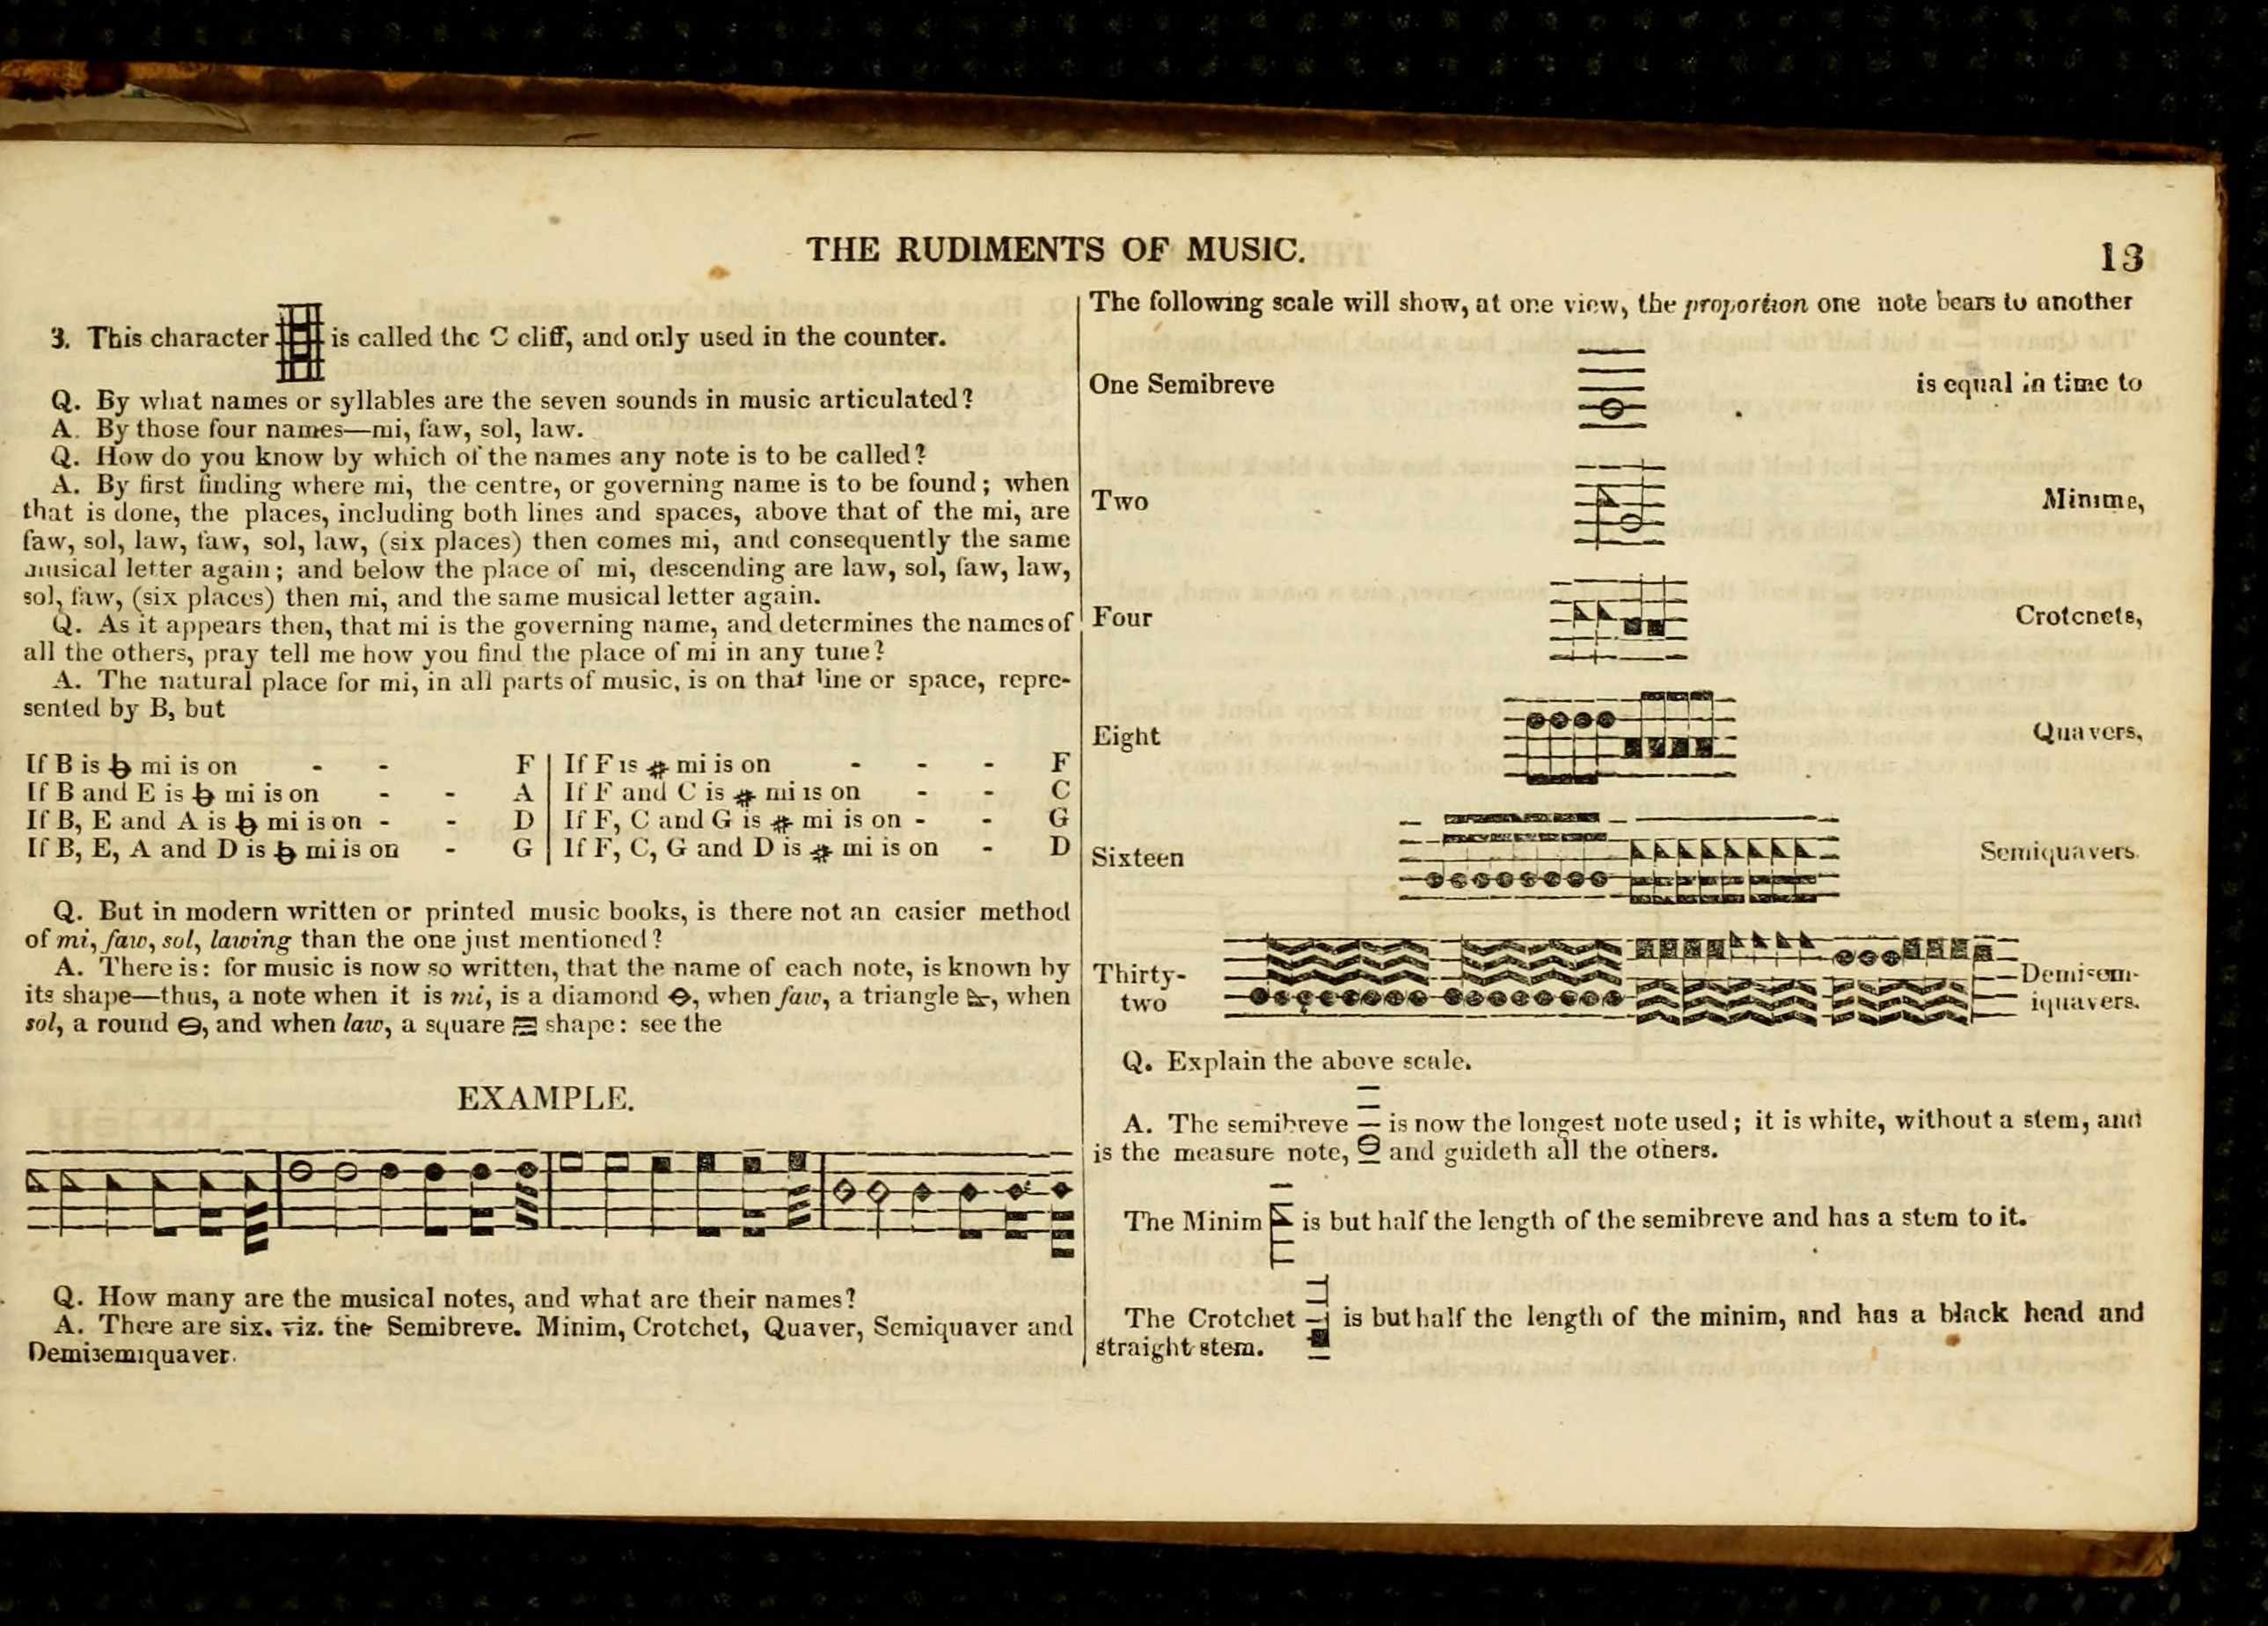 THE RUDIMENTS OF MUSIC.
13
3. This character is called the C cliff, and only used in the counter.
Q. By what names or syllables are the seven sounds in music articulated?
A. By those four names—mi, faw, sol, law.
Q. How do you know by which of the names any note is to be called?
A. By first finding where mi, the centre, or governing name is to be found; when
that is done, the places, including both lines and spaces, above that of the mi, are
faw, sol, law, faw, sol, law, (six places) then comes mi, and consequently the same
musical letter again; and below the place of mi, descending are law, sol, faw, law,
sol, faw, (six places) then mi, and the same musical letter again.
Q. As it appears then, that mi is the governing name, and determines the names of
all the others, pray tell me how you find the place of mi in any tune?
A. The natural place for mi, in all parts of music, is on that line or space, repre-
sented by B, but
If B is ♭ mi is on - - F
If B and E is ♭ mi is on - - A
If B, E and A is ♭ mi is on - - D
If B, E, A and D is ♭ mi is on - G
If F is # mi is on - - - F
If F and C is # mi is on - - C
If F, C and G is # mi is on - - G
If F, C, G and D is # mi is on - D
Q. But in modern written or printed music books, is there not an easier method
of mi, faw, sol, lawing than the one just mentioned?
A. There is: for music is now so written, that the name of each note, is known by
its shape—thus, a note when it is mi, is a diamond, when faw, a triangle, when
sol, a round, and when law, a square shape: see the
EXAMPLE.
Q. How many are the musical notes, and what are their names?
A. There are six. viz. the Semibreve. Minim, Crotchet, Quaver, Semiquaver and
Demisemiquaver.
The following scale will show, at one view, the proportion one note bears to another
One Semibreve is equal in time to
Two Minims,
Four Crotchets,
Eight Quavers,
Sixteen Semiquavers.
Thirty- Demisem-
two iquavers.
Q. Explain the above scale.
A. The semibreve is now the longest note used; it is white, without a stem, and
is the measure note, and guideth all the others.
The Minim is but half the length of the semibreve and has a stem to it.
The Crotchet is but half the length of the minim, and has a black head and
straight stem.